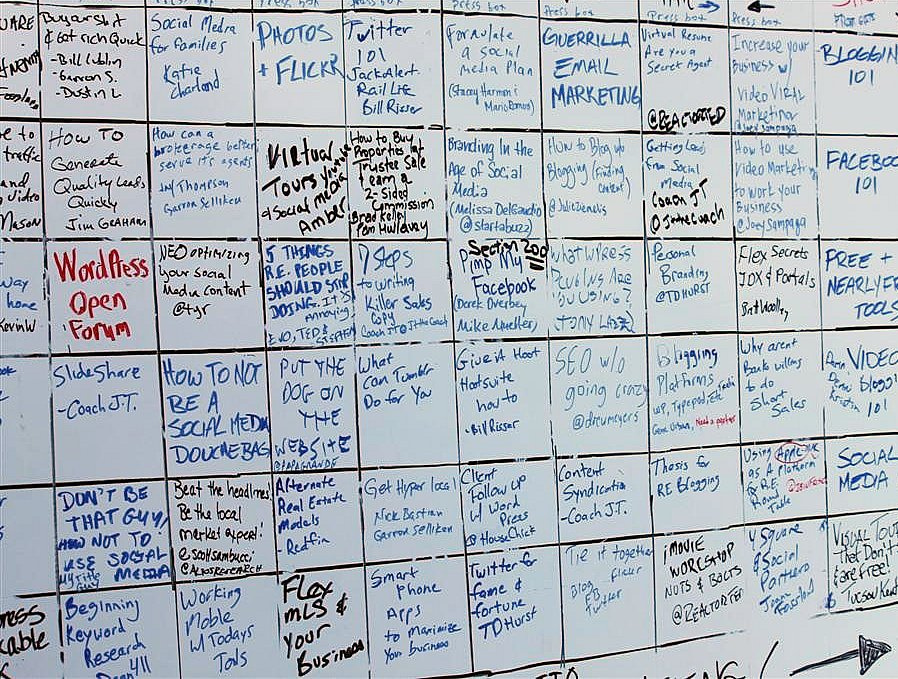 Press box
Press box
Press box
Press box
Press box
Buy a Sh*t
& Get rich Quick
- Bill Lublin
- Garron S.
- Dustin L
Social Media
for Families
Katie
Charland
PHOTOS
+ FLICKR
Twitter
101
Jack Alert
Rail Life
Bill Risser
Formulate
a social
media Plan
(Stacey Harmon i
Mario Romero)
GUERRILLA
EMAIL
MARKETING
Virtual Resume
Are you a
Secret Agent
@REACTORTED
Increase your
Business w/
Video VIRAL
Marketing
@Joey Sampaga
BLOGGIN
101
traffic
and
Video
Mason
How To
Generate
Quality Leads
Quickly
Jim GRAHAM
How can a
brokerage better
serve it's agents
Jay Thompson
Garron Selliken
Virtual
Tours
& Social media
Amber
How to Buy
Properties at
Trustee Sale
Earn a
2-Sided
Commission
Brad Kelley
Pam Mullavey
Branding In the
Age of Social
Media
(Melissa DelGaudio
@startabuzz)
How to Blog w/o
Blogging (Finding
Content)
Getting Leads
From Social
Media
Coach JT
@JtheCoach
How to use
Video Marketing
to work your
Business
@JoeySampaga
FACEBOO
101
way
home
KevinW
WordPress
Open
Forum
NEO optimizing
your social
Media content
@tyr
5 THINGS
R.E. PEOPLE
SHOULD STOP
DOING. It's
annoying
7 Steps
to writing
Killer Sales
Copy
Coach JT @JtheCoach
Section 200
Pimp My
Facebook
(Derek Overbey
Mike Mueller)
What WPress
Plugins Are
You Using?
Personal
Branding
@TDHURST
Flex Secrets
IDX & Portals
FREE +
NEARLY FR
TOOLS
SlideShare
- Coach J.T.
HOW TO NOT
BE A
SOCIAL MEDIA
DOUCHEBAG
PUT THE
DOG ON
THE
WEBSITE
@PAPAGRANDE
What
can Tumblr
Do for You
Give A Hoot
Hootsuite
how to
- Bill Risser
SEO w/o
going crazy
@drumeyers
Blogging
Platforms
WP, Typepad, Etc
Gene Urban, Need a partner
Why aren't
Banks willing
to do
Short
Sales
VIDEO
blogging
101
DON'T BE
THAT GUY!
HOW NOT TO
USE SOCIAL
MEDIA
Beat the headlines!
Be the local
market expert!
@ScottSambucci
@ALTOSRESEARCH
Alternate
Real Estate
Models
- Redfin
Get Hyper local
Nick Bastian
Garron Selliken
Client
Follow up
w/ Word
Press
@HouseChick
Content
Syndication
- Coach J.T.
Thesis for
RE Blogging
Using
as A Platform
@ R.E.
Round
Table
SOCIAL
MEDIA
Beginning
Keyword
Research
Working
Mobile
W/ Todays
Tools
Flex
MLS &
Your
Business
Smart
phone
Apps
to Maximize
Your business
Twitter for
fame &
fortune
TDHurst
Tie it together
Blog
flickr
FB
twitter
iMOVIE
WORKSHOP
NUTS & BOLTS
@REACTORTED
Y Square
& Social
Partners
VISUAL TOUR
That Don't
& are free!